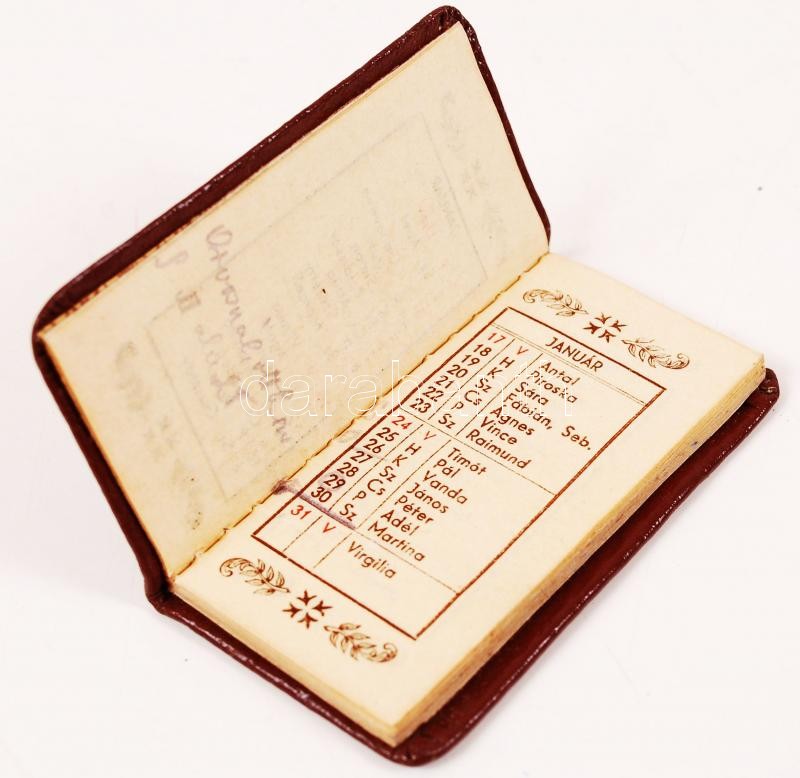 JANUÁR
17 V Antal
18 H Piroska
19 K Sára
20 Sz Fábián, Seb.
21 Cs Ágnes
22 P Vince
23 Sz Raimund
24 V Timót
25 H Pál
26 K Vanda
27 Sz János
28 Cs Péter
29 P Adél
30 Sz Martina
31 V Virgilia
darabanth